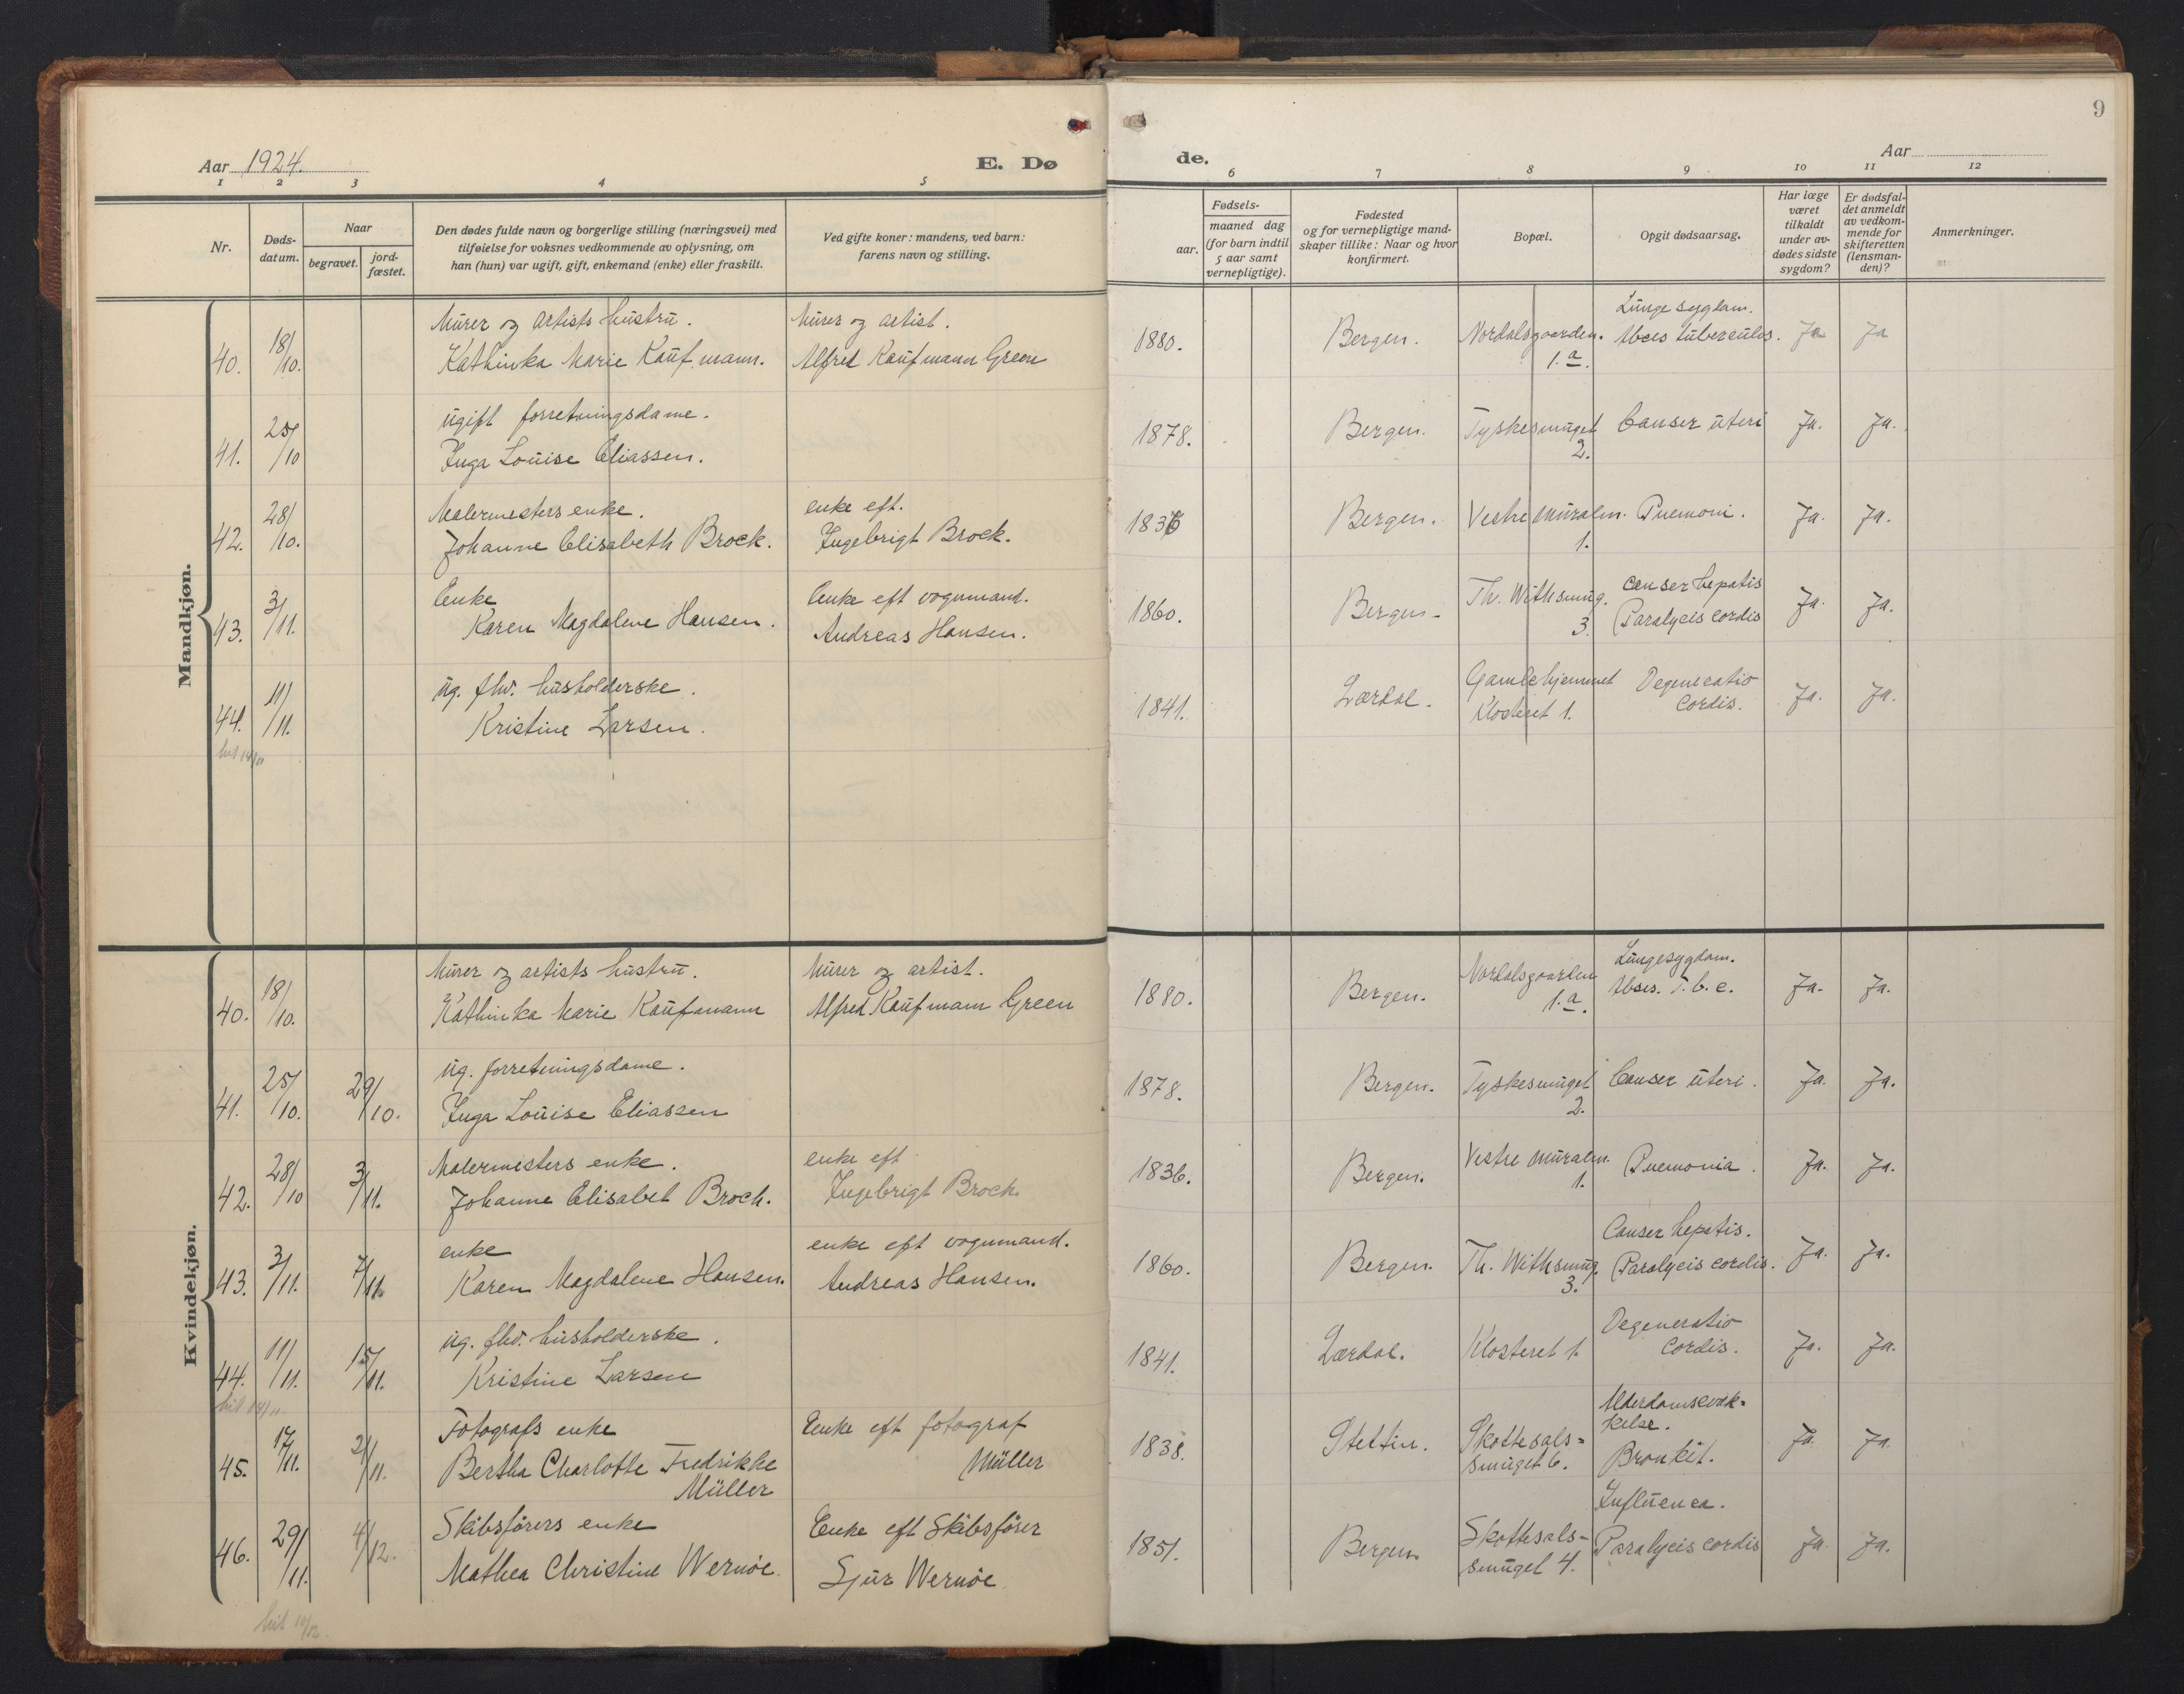 9
Aar 1924.
E. Dø
de.
Aar
1 2 3 4 5
6 7 8 9 10 11 12
Nr.
Døds-
datum.
Naar
begravet.
jord-
fæstet.
Den dødes fulde navn og borgerlige stilling (næringsvei) med
tilføielse for voksnes vedkommende av oplysning, om
han (hun) var ugift, gift, enkemand (enke) eller fraskilt.
Ved gifte koner: mandens, ved barn:
farens navn og stilling.
Fødsels-
aar.
maaned dag
(for barn indtil
5 aar samt
vernepligtige).
Fødested
og for vernepligtige mand-
skaper tillike: Naar og hvor
konfirmert.
Bopæl.
Opgit dødsaarsag.
Har læge
været
tilkaldt
under av-
dødes sidste
sygdom?
Er dødsfal-
det anmeldt
av vedkom-
mende for
skifteretten
(lensman-
den)?
Anmerkninger.
Mandkjøn.
40. 18/10.
Murer og artists hustru.
Kathinka Marie Kaufmann.
Murer og artist.
Alfred Kaufmann Green
1880. Bergen.
Nordalsgaarden.
1.a.
Lunge sygdom.
Abces tuberculos.
Ja Ja
41. 25/10
ugift forretningsdame.
Inga Louise Eliassen.
1878. Bergen.
Tyskesmuget
2.
Canser uteri
Ja. Ja.
42. 28/10.
Malermesters enke.
Johanne Elisabeth Brock.
enke eft.
Ingebrigt Brock.
1836 Bergen.
Vestre Muralm.
1.
Pnemoni.
Ja. Ja.
43. 3/11.
Enke
Karen Magdalene Hansen.
Enke eft vognmand.
Andreas Hansen.
1860. Bergen.
Th. Withsmug.
3.
Canser hepatis
Paralycis cordis
Ja. Ja.
44. 11/11.
ug. fhv. husholderske.
Kristine Larsen.
1841. Lærdal.
Gamlehjemmet
Klosteret 1.
Degeneratio
Cordis.
Ja. Ja.
hit 14/11
Kvindekjøn.
40. 18/10.
Murer og artists hustru.
Kathinka Marie Kaufmann
Murer og artist.
Alfred Kaufmann Green
1880. Bergen.
Nordalsgaarden
1.a.
Lungesygdom.
Abses. T.b.c.
Ja. Ja.
41. 25/10. 29/10.
ug. forretningsdame.
Inga Louise Eliassen
1878. Bergen.
Tyskesmuget
2.
Canser uteri.
Ja. Ja.
42. 28/10 3/11.
Malermesters enke.
Johanne Elisabet Broch.
enke eft
Ingebrigt Broch.
1836. Bergen.
Vestre Muralm.
1.
Pnemonia.
Ja. Ja.
43. 3/11. 7/11.
enke
Karen Magdalene Hansen.
enke eft vognmand.
Andreas Hansen.
1860. Bergen.
Th. Withsmug.
3.
Canser hepatis.
Paralycis cordis.
Ja. Ja.
44. 11/11. 15/11.
ug. fhv. husholderske.
Kristine Larsen
1841. Lærdal.
Klosteret 1.
Degeneratio
Cordis.
Ja. Ja.
hit 14/11
45. 17/11. 21/11.
Fotografs enke
Bertha Charlotte Fredrikke
Müller
Enke eft fotograf
Müller
1838. Stettin.
Skottesals-
smuget 6.
Alderdomssvæk-
kelse.
Bronkit.
Ja. Ja.
46. 29/11. 4/12.
Skibsförers enke
Mathea Christine Wernöe.
Enke eft Skibsförer
Sjur Wernöe
1851. Bergen
Skottesals-
smuget 4.
Influenca.
Paralycis cordis
Ja. Ja.
hit 10/12.